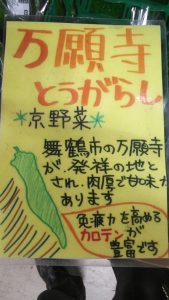 万願寺
とうがらし
*京野菜*
舞鶴市の万願寺
が、発祥の地と
され、肉厚で甘味が
あります
免疫力を高める
カロテンが
豊富です